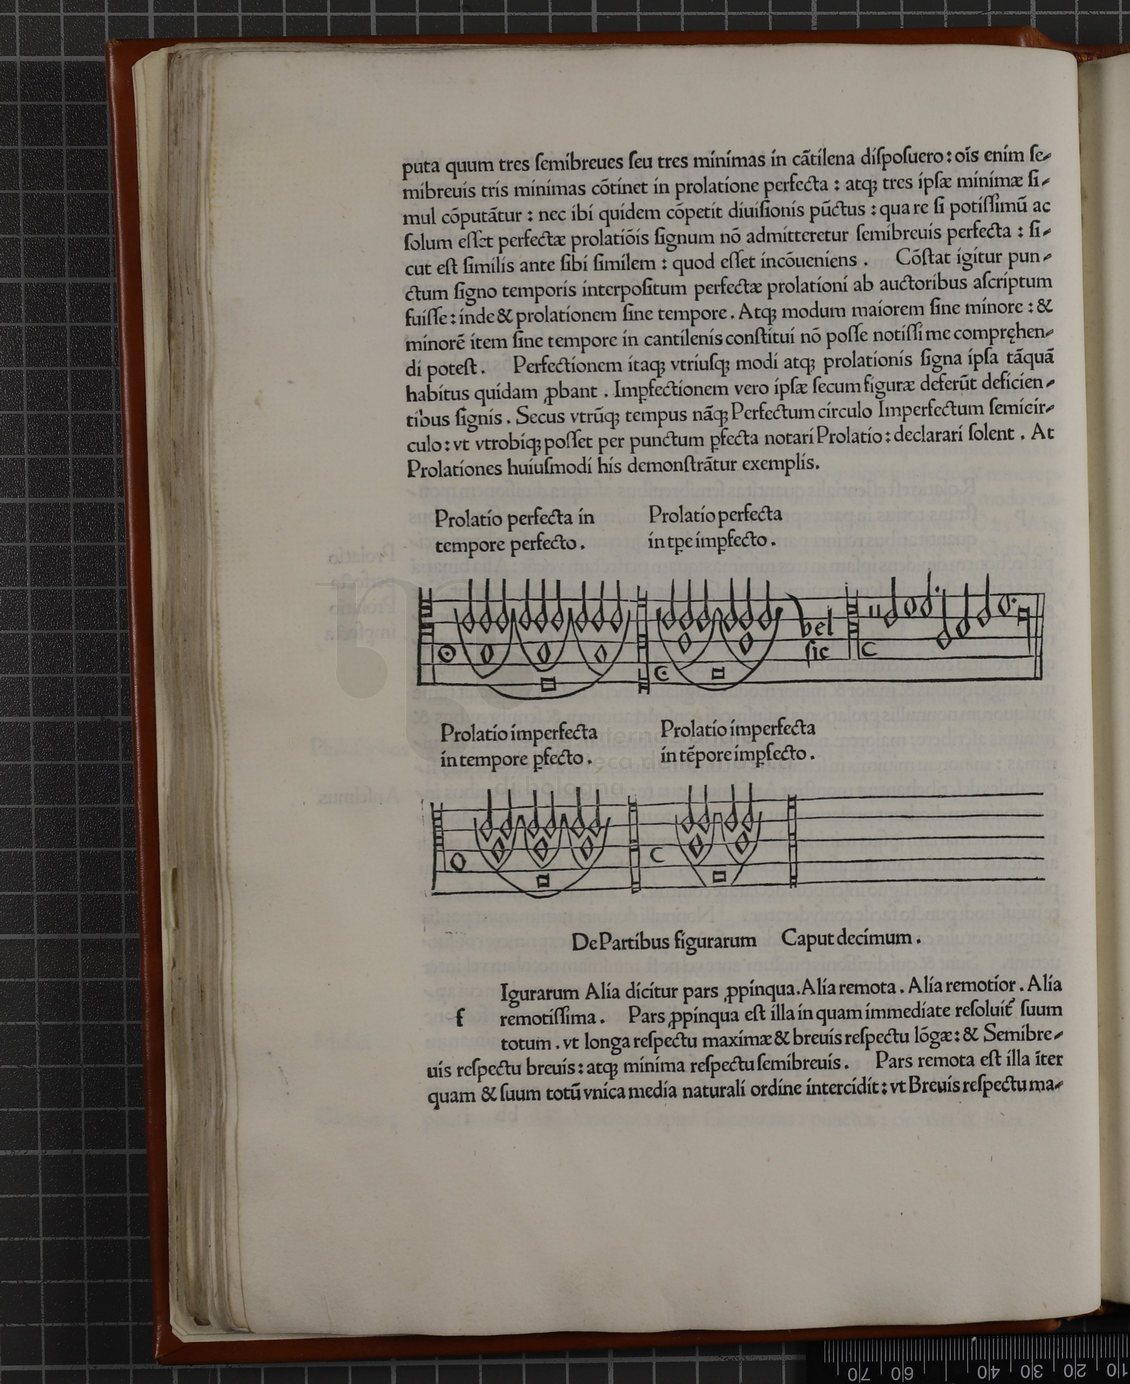 puta quum tres ſemibreues ſeu tres minimas in cãtilena diſpoſuero: oĩs enim ſe-
mibreuis tris minimas cõtinet in prolatione perfecta : atqꝫ tres ipſæ minimæ ſi-
mul cõputãtur : nec ibi quidem cõpetit diuiſionis pũctus : quare ſi potiſſimũ ac
ſolum eſſet perfectæ prolatiõis ſignum nõ admitteretur ſemibreuis perfecta : ſi-
cut eſt ſimilis ante ſibi ſimilem : quod eſſet incõueniens . Cõſtat igitur pun-
ctum ſigno temporis interpoſitum perfectæ prolationi ab auctoribus aſcriptum
fuiſſe: inde & prolationem ſine tempore. Atqꝫ modum maiorem ſine minore : &
minorẽ item ſine tempore in cantilenis conſtitui nõ poſſe notiſſime compręhen-
di poteſt . Perfectionem itaqꝫ vtriuſqꝫ modi atqꝫ prolationis ſigna ipſa tãquã
habitus quidam ꝓbant . Imꝑfectionem vero ipſæ ſecum figuræ deferũt deficien-
tibus ſignis . Secus vtrũqꝫ tempus nãqꝫ Perfectum circulo Imperfectum ſemicir-
culo: vt vtrobiqꝫ poſſet per punctum ꝑfecta notari Prolatio: declarari ſolent . At
Prolationes huiuſmodi his demonſtrãtur exemplis.
Prolatio perfecta in
tempore perfecto .
Prolatio perfecta
in tꝑe imꝑfecto .
vel
ſic
Prolatio imperfecta
in tempore ꝑfecto .
Prolatio imperfecta
in tẽpore imꝑfecto .
De Partibus figurarum Caput decimum .
Igurarum Alia dicitur pars ꝓpinqua. Alia remota . Alia remotior . Alia
f remotiſſima . Pars ꝓpinqua eſt illa in quam immediate reſoluit᷑ ſuum
totum . vt longa reſpectu maximæ & breuis reſpectu lõgæ: & Semibre-
uis reſpectu breuis: atqꝫ minima reſpectu ſemibreuis . Pars remota eſt illa iter
quam & ſuum totũ vnica media naturali ordine intercidit: vt Breuis reſpectu ma-
70 60 40 30 20 10